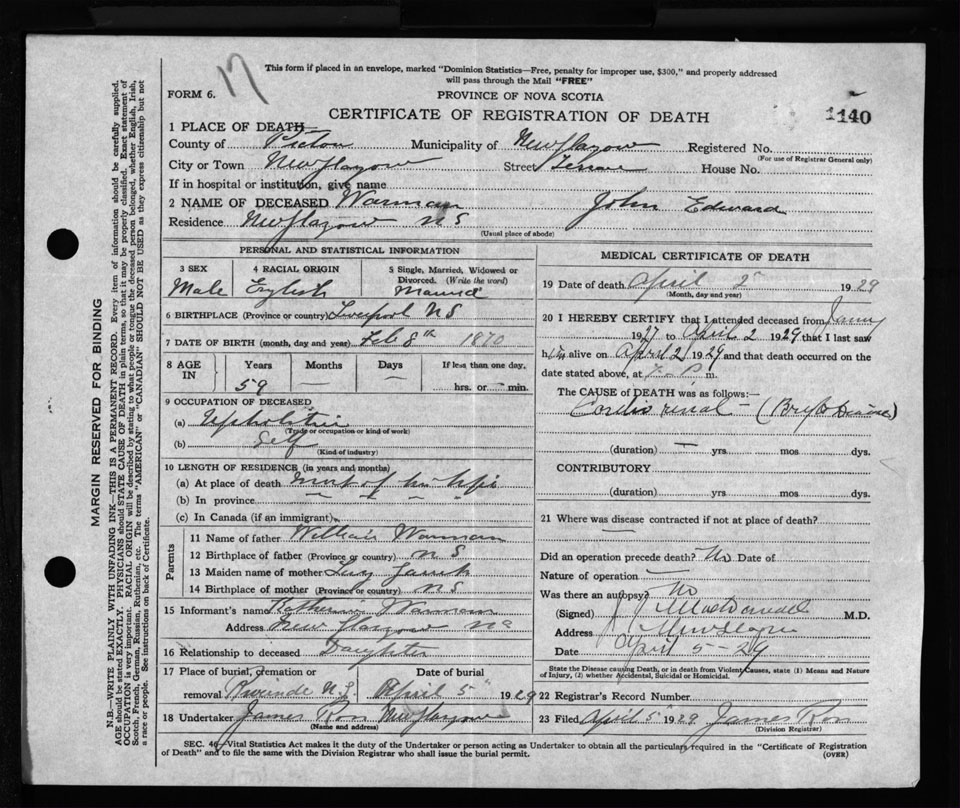 17
This form if placed in an envelope, marked "Dominion Statistics—Free, penalty for improper use, $300," and properly addressed
will pass through the Mail "FREE"
FORM 6.
PROVINCE OF NOVA SCOTIA
CERTIFICATE OF REGISTRATION OF DEATH
1140
1 PLACE OF DEATH—
County of Pictou Municipality of New Glasgow Registered No.
(For use of Registrar General only)
City or Town New Glasgow Street House No.
If in hospital or institution, give name
2 NAME OF DECEASED Warman John Edward
Residence New Glasgow NS
(Usual place of abode)
PERSONAL AND STATISTICAL INFORMATION
3 SEX
Male
4 RACIAL ORIGIN
English
5 Single, Married, Widowed or
Divorced. (Write the word)
Married
6 BIRTHPLACE (Province or country) Liverpool NS
7 DATE OF BIRTH (month, day and year) Feb 8th 1870
8 AGE
IN
Years
59
Months
—
Days
—
If less than one day,
hrs. or — min.
9 OCCUPATION OF DECEASED
(a)
(Trade or occupation or kind of work)
(b) Self
(Kind of industry)
10 LENGTH OF RESIDENCE (in years and months)
(a) At place of death most of his life
(b) In province — — —
(c) In Canada (if an immigrant)
Parents
11 Name of father William Warman
12 Birthplace of father (Province or country) NS
13 Maiden name of mother Lucy
14 Birthplace of mother (Province or country) NS
15 Informant's name Katherine Warman
Address New Glasgow NS
16 Relationship to deceased Daughter
17 Place of burial, cremation or Date of burial
removal N.S. April 5 1929
18 Undertaker James Ross New Glasgow
(Name and address)
MEDICAL CERTIFICATE OF DEATH
19 Date of death April 2 1929
(Month, day and year)
20 I HEREBY CERTIFY that I attended deceased from
1927 to April 2 1929 that I last saw
h im alive on April 2 1929 and that death occurred on the
date stated above, at 7 P. m.
The CAUSE of DEATH was as follows:
Cardio renal (Brights Disease)
(duration) — yrs. mos dys.
CONTRIBUTORY
(duration) yrs. mos dys.
21 Where was disease contracted if not at place of death?
Did an operation precede death? No Date of
Nature of operation —
Was there an autopsy? No
(Signed) M.D.
Address New Glasgow
Date April 5 - 29
State the Disease causing Death, or in death from Violent Causes, state (1) Means and Nature
of Injury, (2) whether Accidental, Suicidal or Homicidal.
22 Registrar's Record Number
23 Filed April 5 1929 James Ross
(Division Registrar)
SEC. 40—Vital Statistics Act makes it the duty of the Undertaker or person acting as Undertaker to obtain all the particulars required in the "Certificate of Registration
of Death" and to file the same with the Division Registrar who shall issue the burial permit.
(OVER)
MARGIN RESERVED FOR BINDING
N.B.—WRITE PLAINLY WITH UNFADING INK—THIS IS A PERMANENT RECORD. Every item of information should be carefully supplied.
AGE should be stated EXACTLY. PHYSICIANS should STATE CAUSE OF DEATH in plain terms, so that it may be properly classified. Exact statement of
OCCUPATION is very important. RACIAL ORIGIN will be described by stating to what people or tongue the deceased person belonged, whether English, Irish,
Scotch, French, German, Russian, Ruthenian, etc. The terms "AMERICAN" or "CANADIAN" SHOULD NOT BE USED as they express citizenship but not
a race or people. See instructions on back of Certificate.